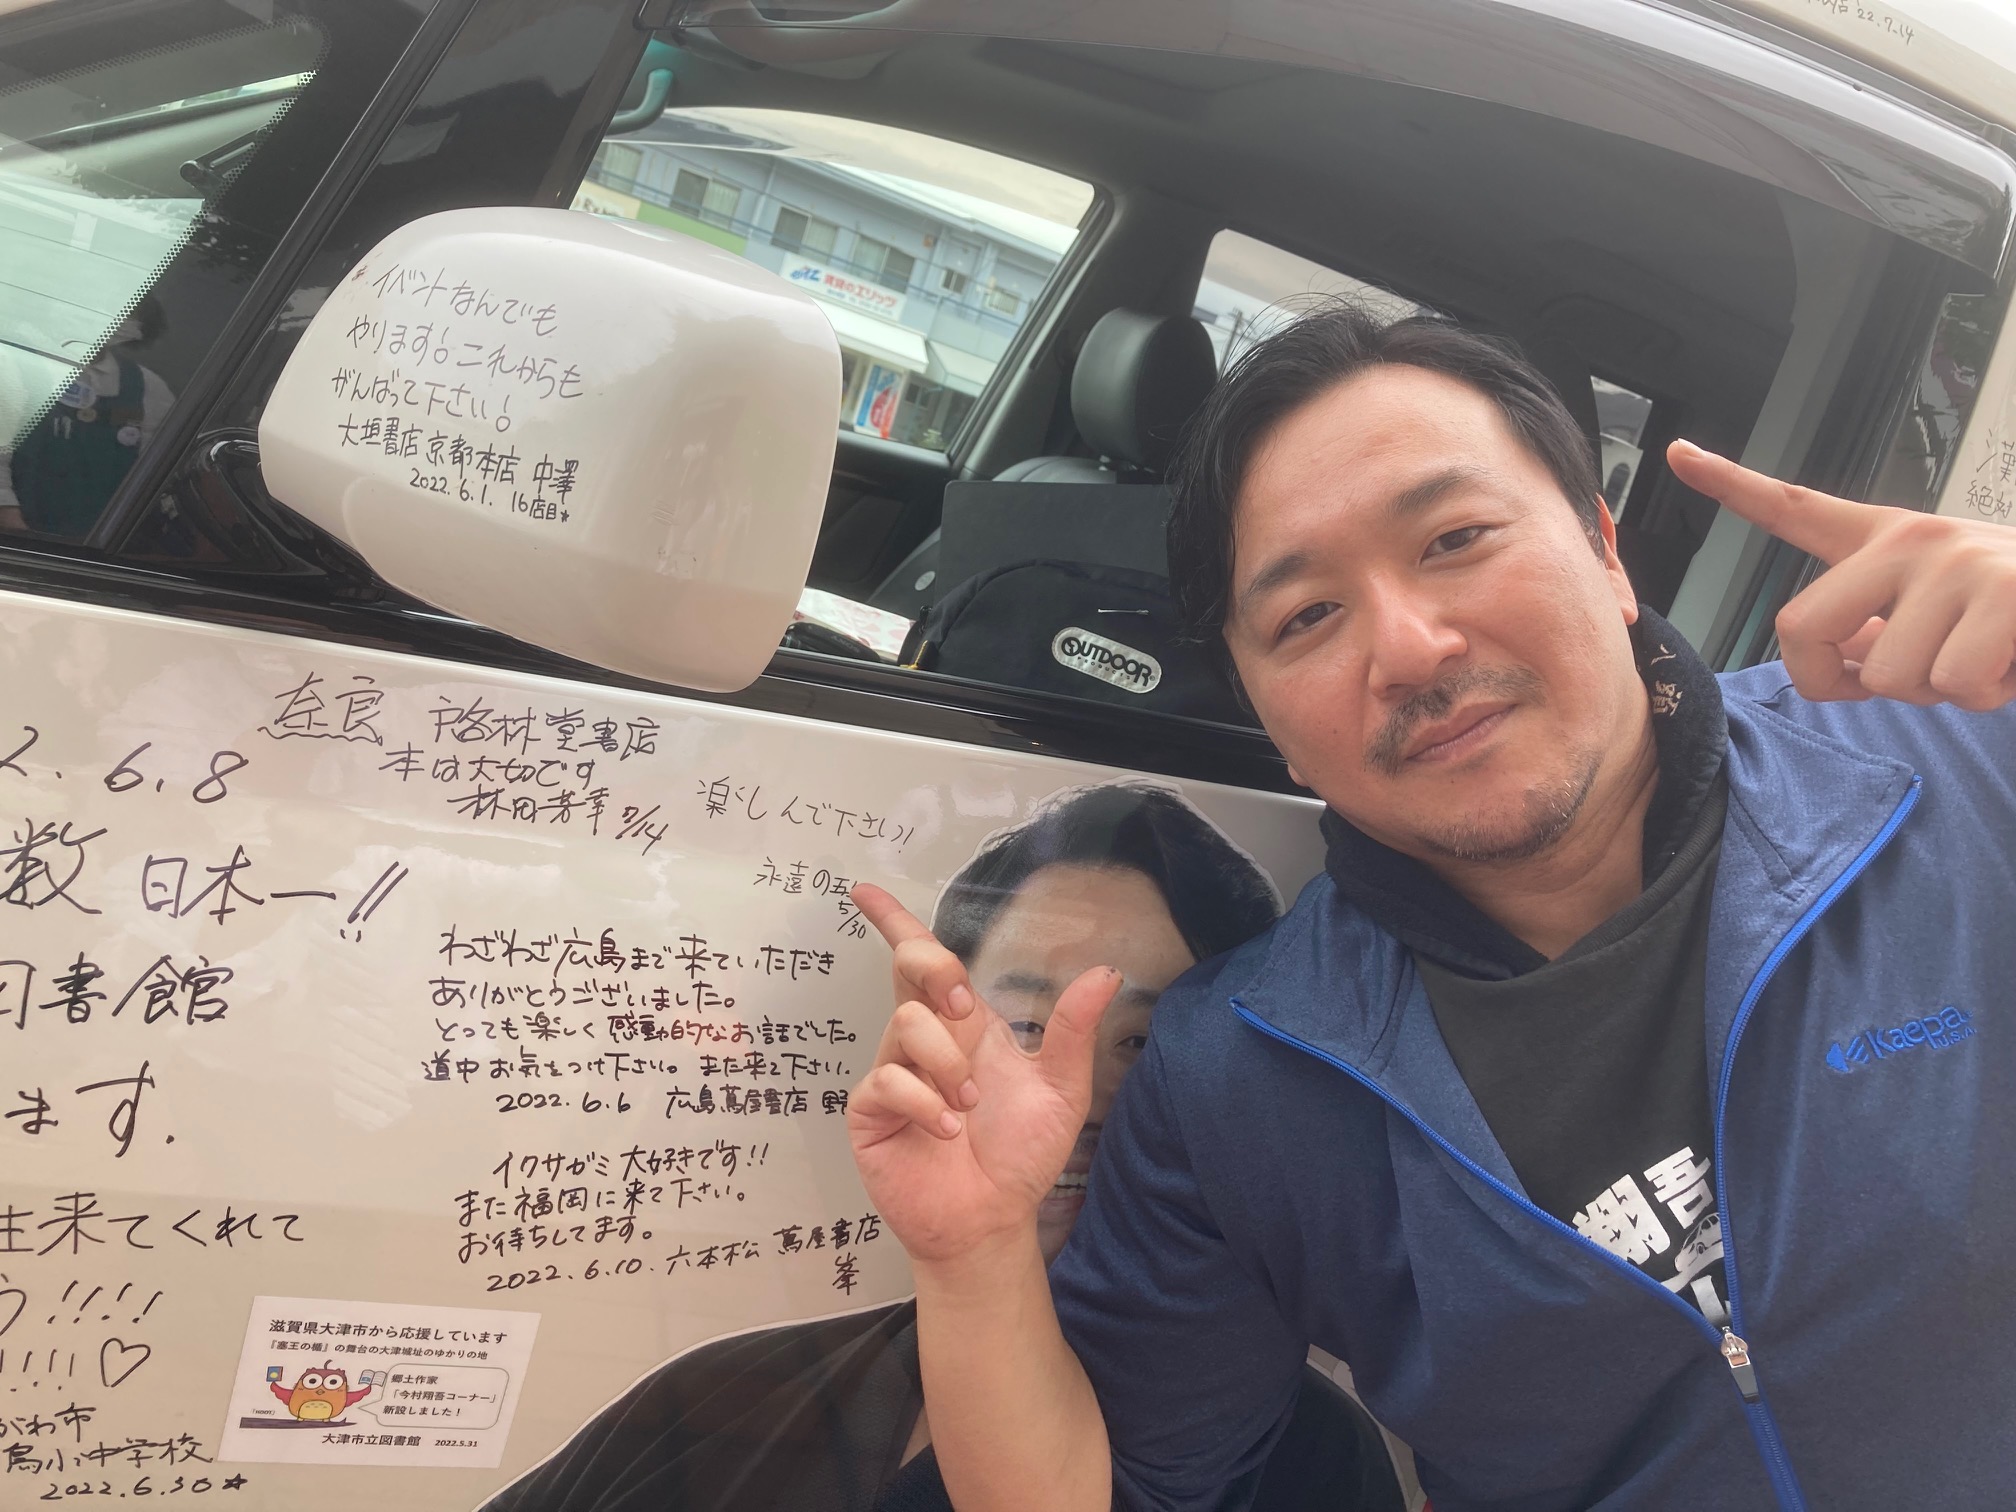 '22.7.14
イベントなんでも
やります! これからも
がんばって下さい!
大垣書店京都本店 中澤
2022.6.1. 16店目☆
賃貸のエリッツ
OUTDOOR
PRODUCTS
絶対
奈良 啓林堂書店
本は大切です
林田芳幸 7/14
2. 6. 8
数 日本一!!
図書館
ます.
来てくれて
!!!!
!!!!♡
がわ市
島小中学校
2022.6.30☆
楽しんで下さい!
永遠の五
5/30
わざわざ広島まで来ていただき
ありがとうございました。
とっても楽しく感動的なお話でした。
道中お気をつけ下さい。また来て下さい.
2022.6.6 広島蔦屋書店 野
イクサガミ大好きです!!
また福岡に来て下さい。
お待ちしてます。
2022.6.10. 六本松 蔦屋書店
峯
滋賀県大津市から応援しています
『塞王の楯』の舞台の大津城址のゆかりの地
郷土作家
「今村翔吾コーナー」
新設しました!
大津市立図書館 2022.5.31
Kaepa
U.S.A
翔吾